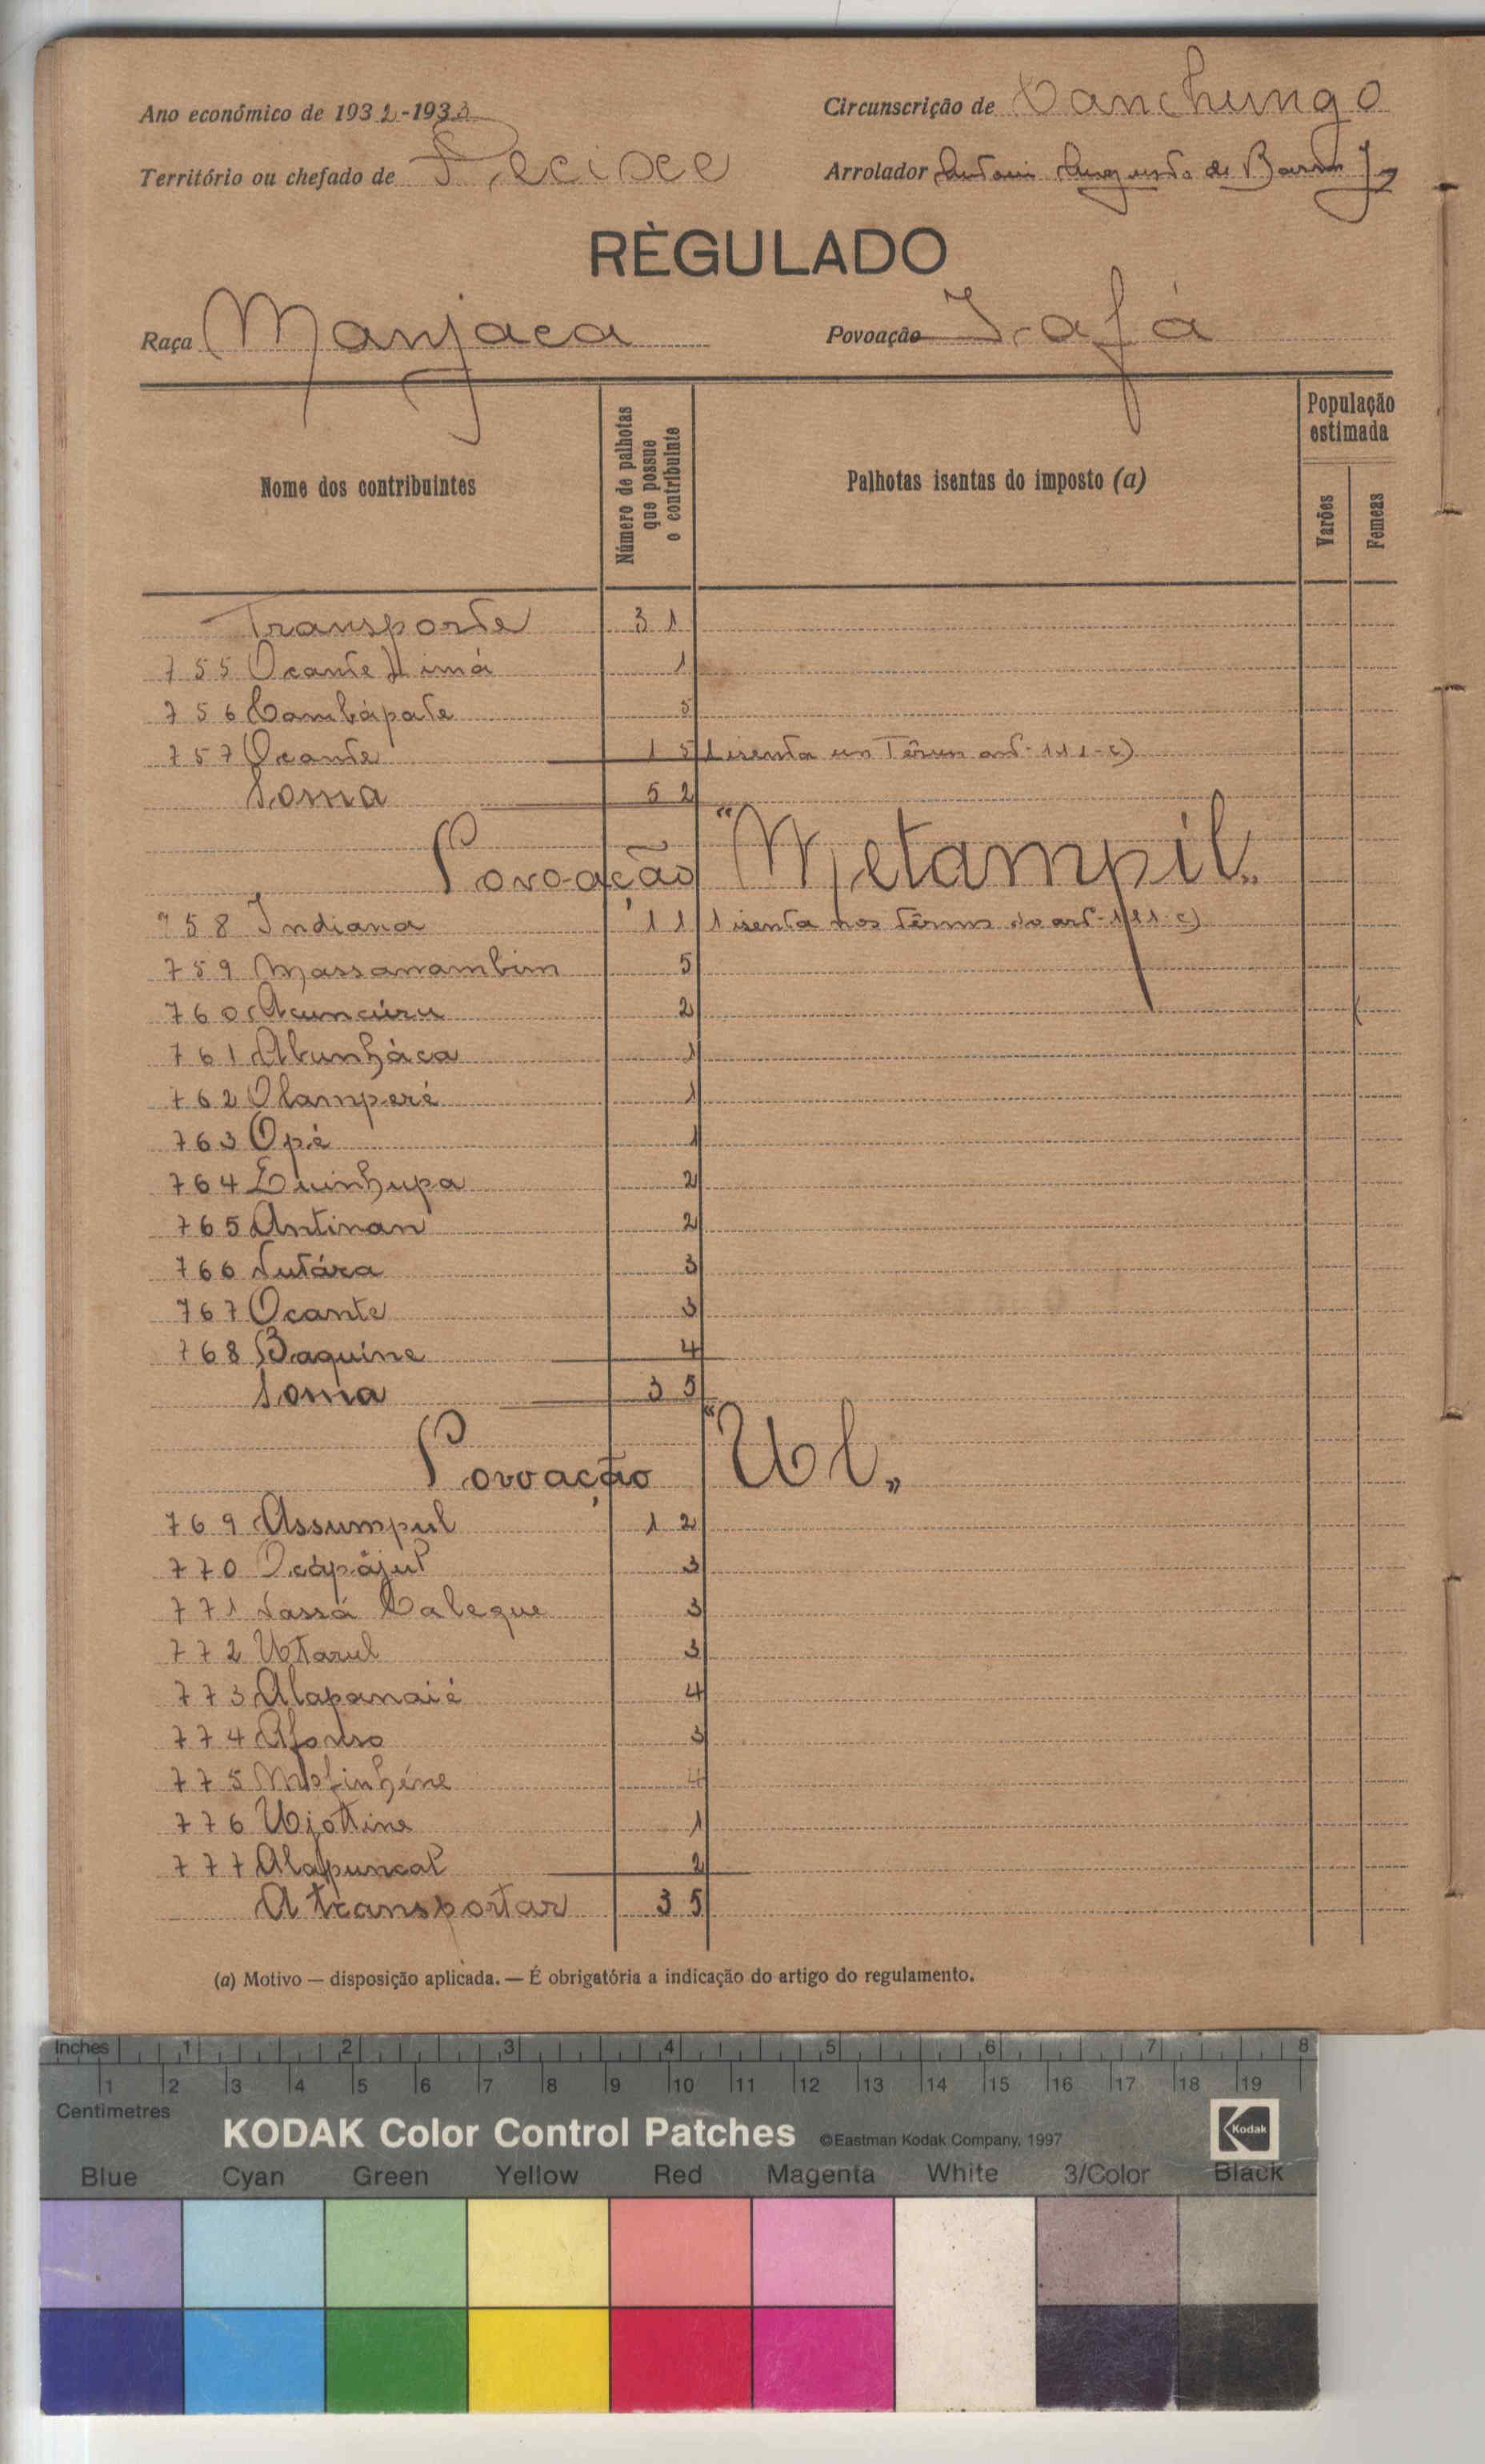 Ano económico de 1932-1933
Circunscrição de Canchungo
Território ou chefado de Pecisce
Arrolador Antonio Augusto de Barros Jr
RÈGULADO
Raça Manjaca
Povoação Jafá
Nome dos contribuintes
Número de palhotas que possue o contribuinte
Palhotas isentas do imposto (a)
População estimada
Varões
Femeas
Transporte 31
755 Ocante 1
756 Cambápate 5
757 Ocante 15 1 isenta art-111-c)
Soma 52
Povoação "Metampil"
758 Indiana 11 1 isenta nos têrmos do art-111-c)
759 Massanambim 5
760 Acuncúru 2
761 Abunháca 1
762 Olamperé 1
763 Opé 1
764 Quinhupa 2
765 Antinan 2
766 3
767 Ocante 3
768 Baquine 4
Soma 35
Povoação "Ul"
769 Assumpul 12
770 3
771 Caleque 3
772 Utarul 3
773 Alapanaié 4
774 Afonso 3
775 4
776 Ujottine 1
777 Alapuncal 2
A transportar 35
(a) Motivo — disposição aplicada. — É obrigatória a indicação do artigo do regulamento.
Inches 1 2 3 4 5 6 7 8
1 2 3 4 5 6 7 8 9 10 11 12 13 14 15 16 17 18 19
Centimetres
KODAK Color Control Patches ©Eastman Kodak Company, 1997 Kodak
Blue Cyan Green Yellow Red Magenta White 3/Color Black